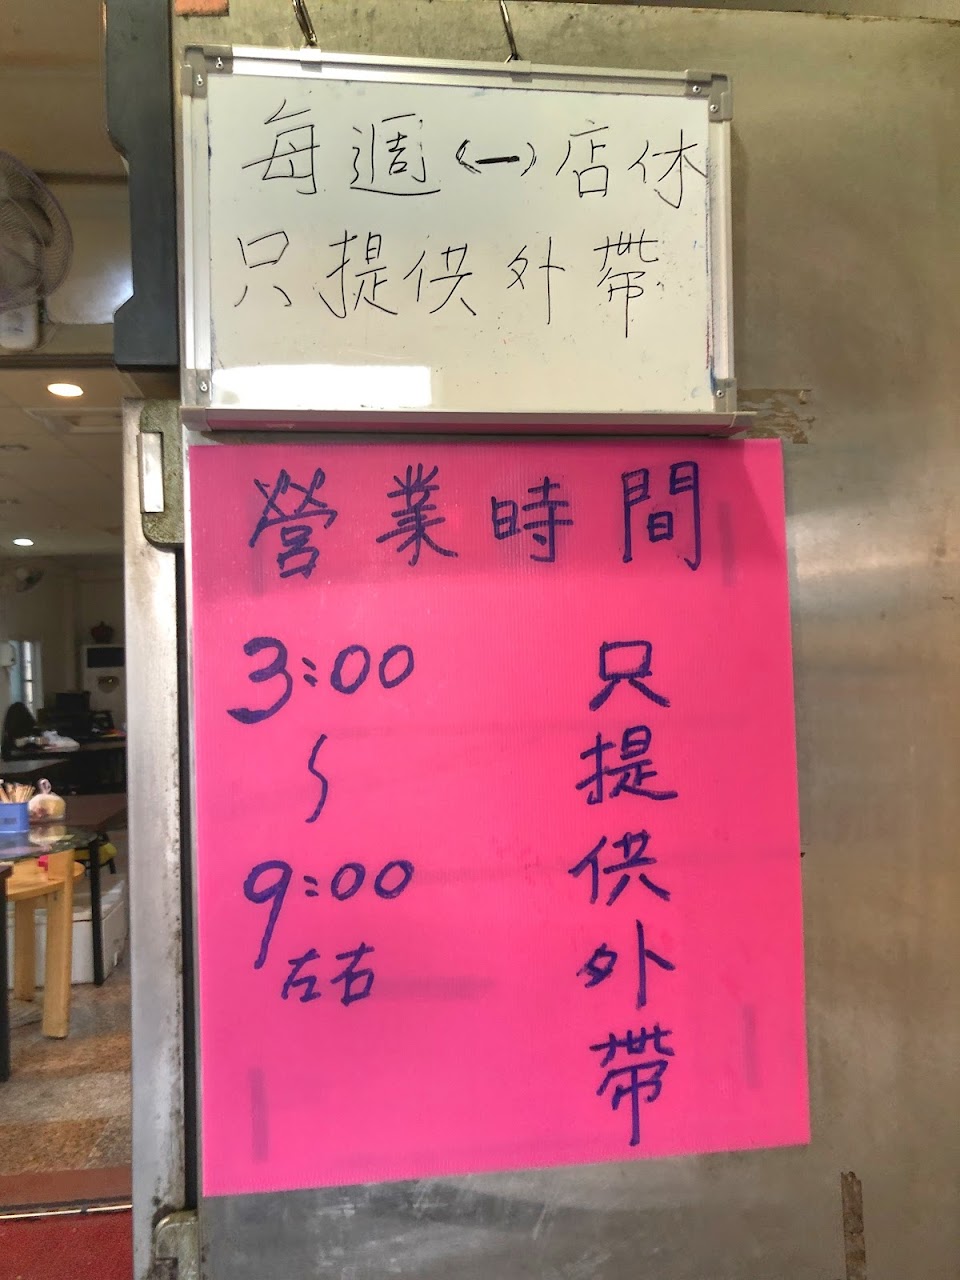 每週(一)店休
只提供外帶
營業時間
3:00
~
9:00
左右
只提供外帶